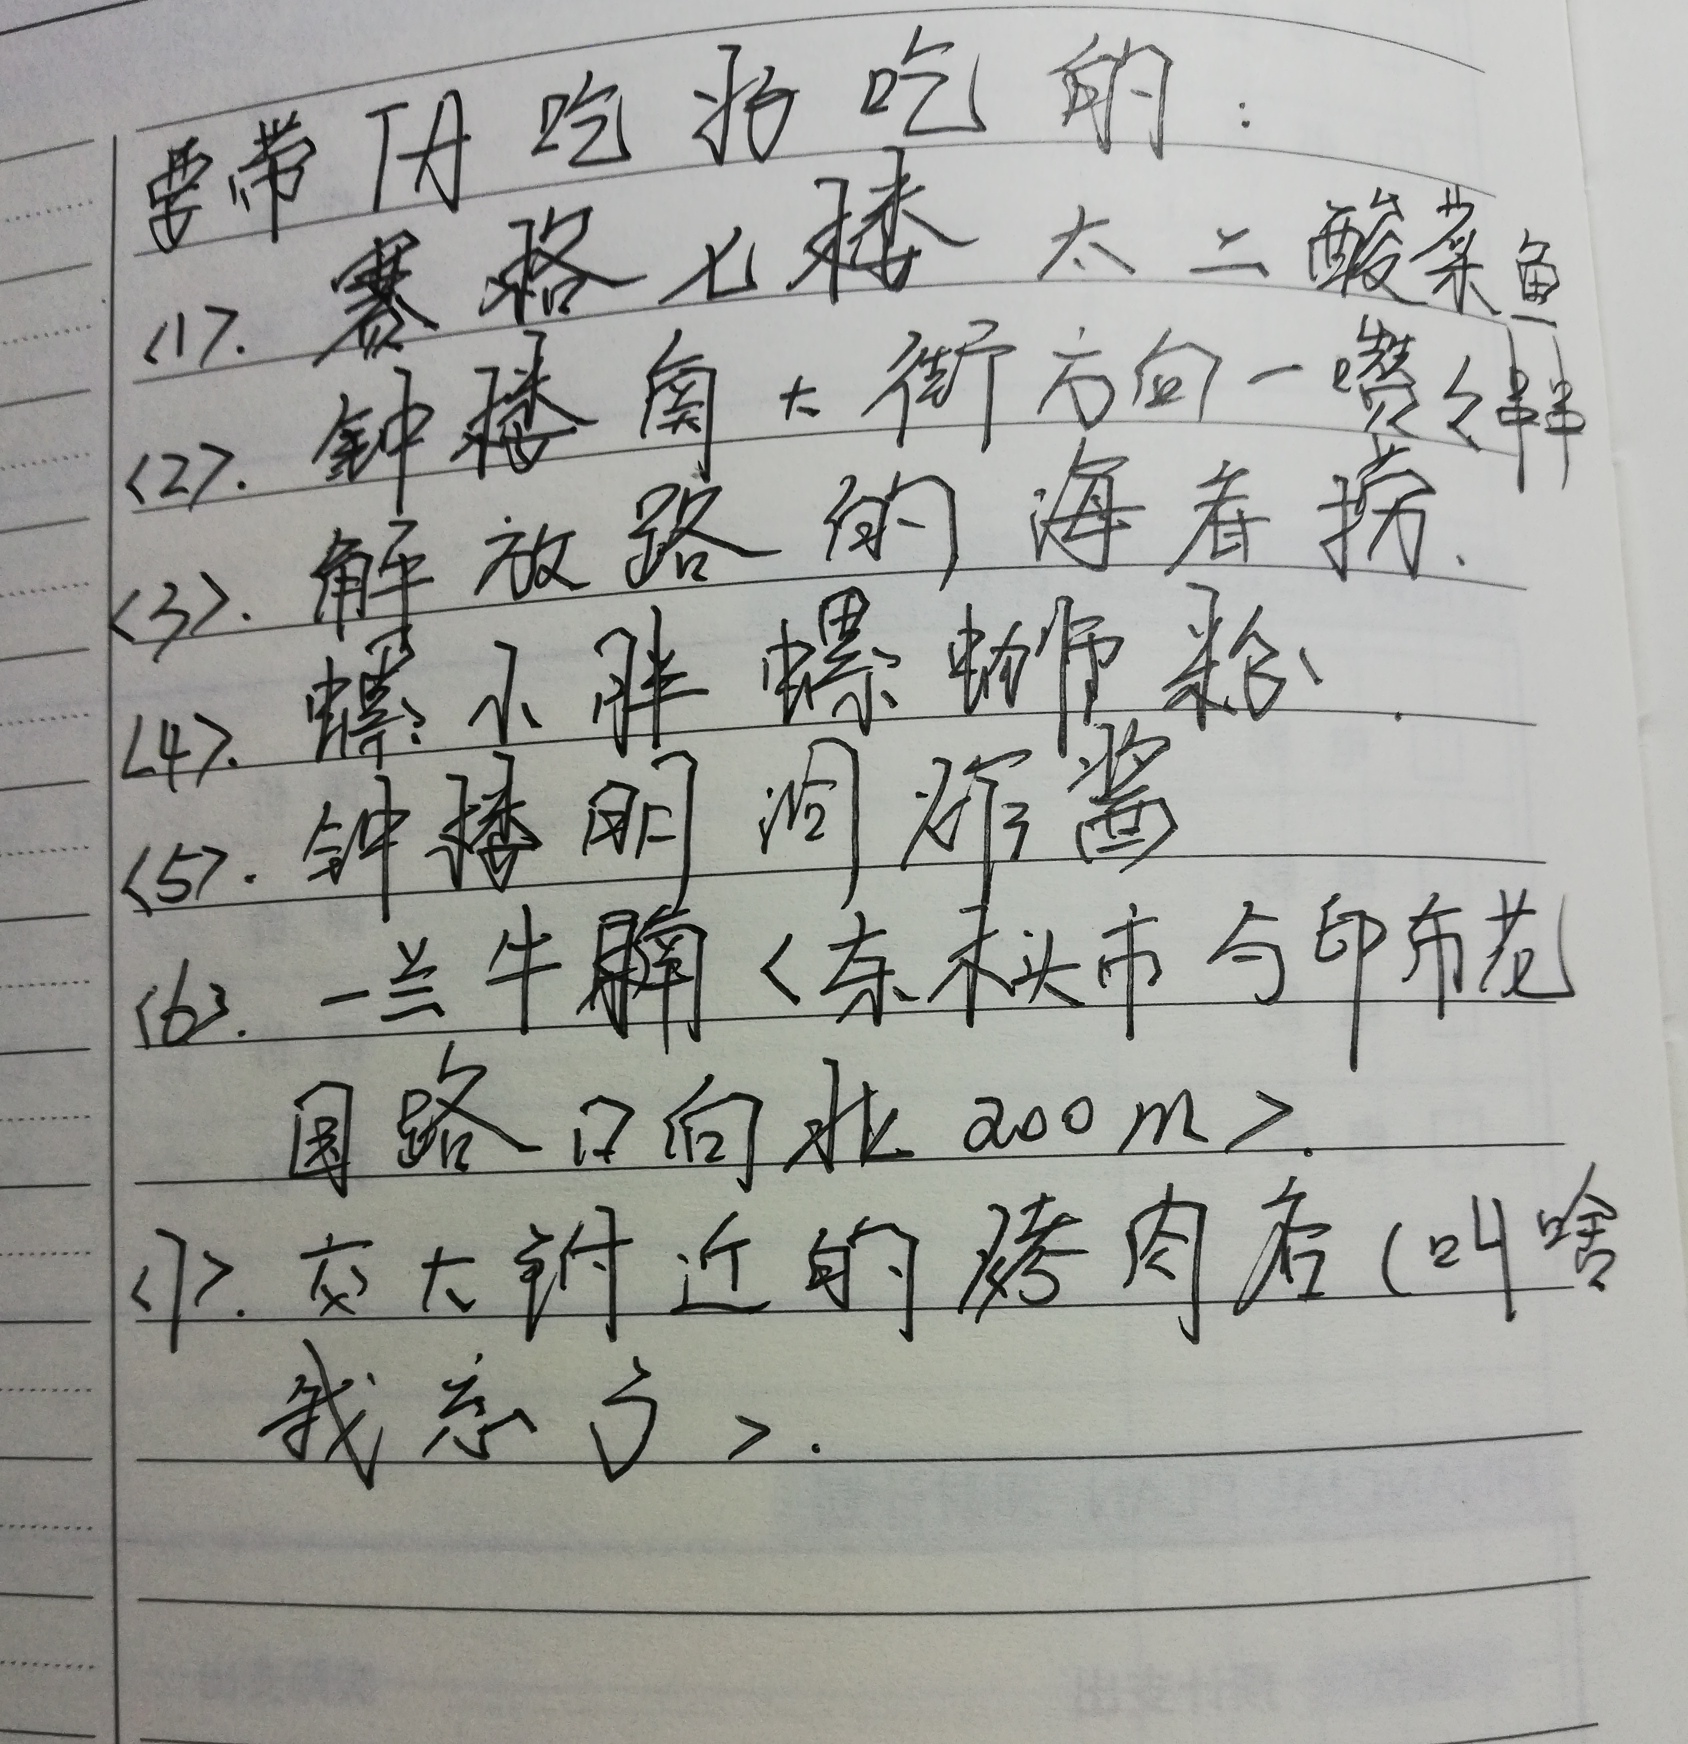 要带TA吃好吃的:
<1>. 赛格七楼 太二酸菜鱼
<2>. 钟楼南大街方向一嘴々串串
<3>. 解放路的海底捞.
<4>. 螺小胖螺蛳粉.
<5>. 钟楼明洞炸酱
<6>. 一兰牛腩<东木头市与印布花
园路口向北200m>.
<7>. 交大附近的烤肉店(叫啥
我忘了>.